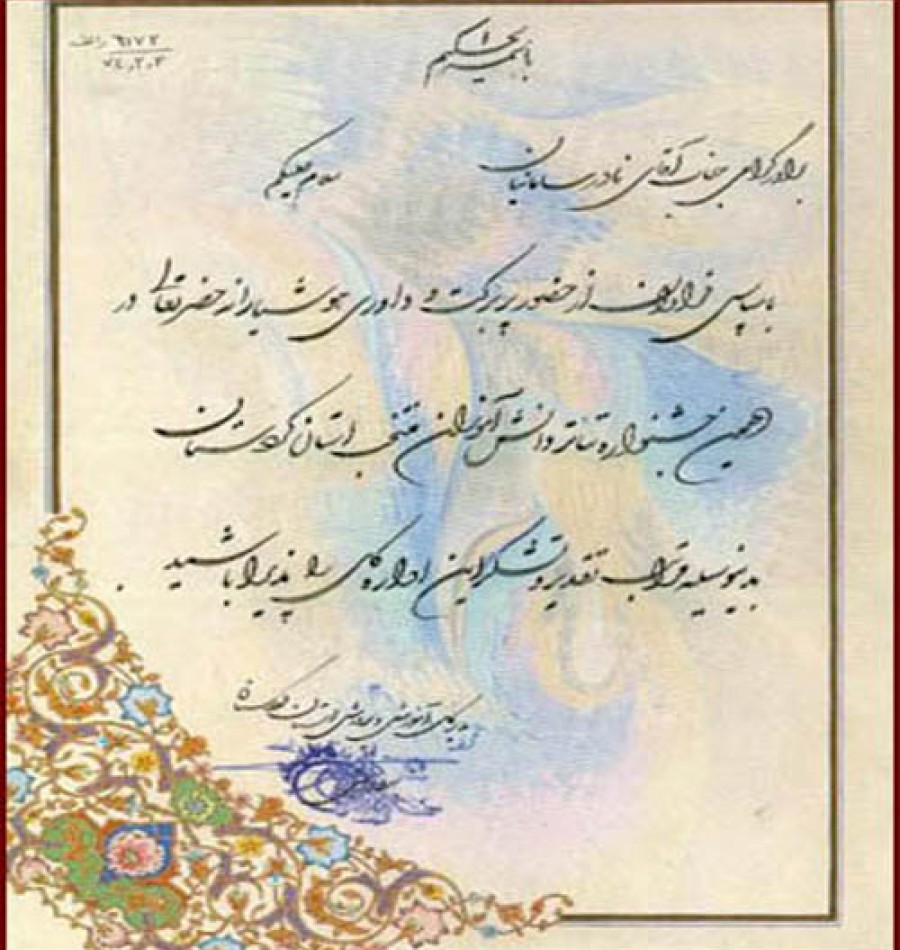 باسمه الحکیم
۶۱۷۲ / الف
۷۴,۲,۳
برادر گرامی جناب آقای نادر سامانیان
سلام علیکم
با سپاس فراوان از حضور پر برکت و داوری هوشیارانه حضرتعالی در
دهمین جشنواره تئاتر دانش آموزان منتخب استان کردستان
بدینوسیله مراتب تقدیر و تشکر این اداره کل را پذیرا باشید .
مدیر کل آموزش و پرورش استان کردستان